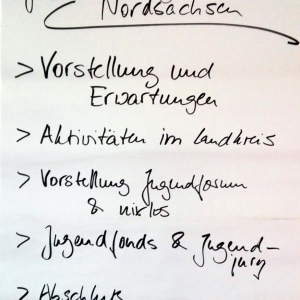 Nordsachsen
> Vorstellung und
Erwartungen
> Aktivitäten im Landkreis
> Vorstellung Jugendforum
& niklos
> Jugendfonds & Jugend-
jury
> Abschluss